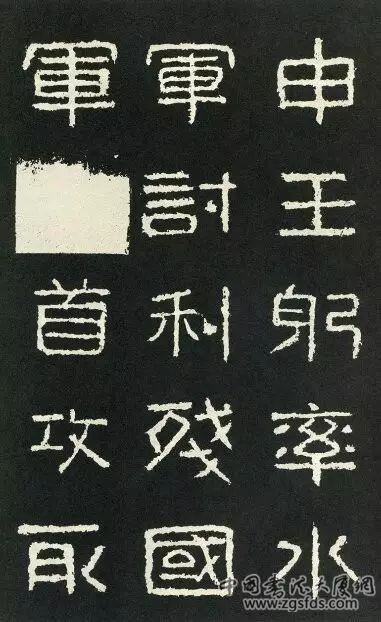 申王躬率水
軍討利殘國
軍首攻取
中国书法大厦网
www.zgsfds.com